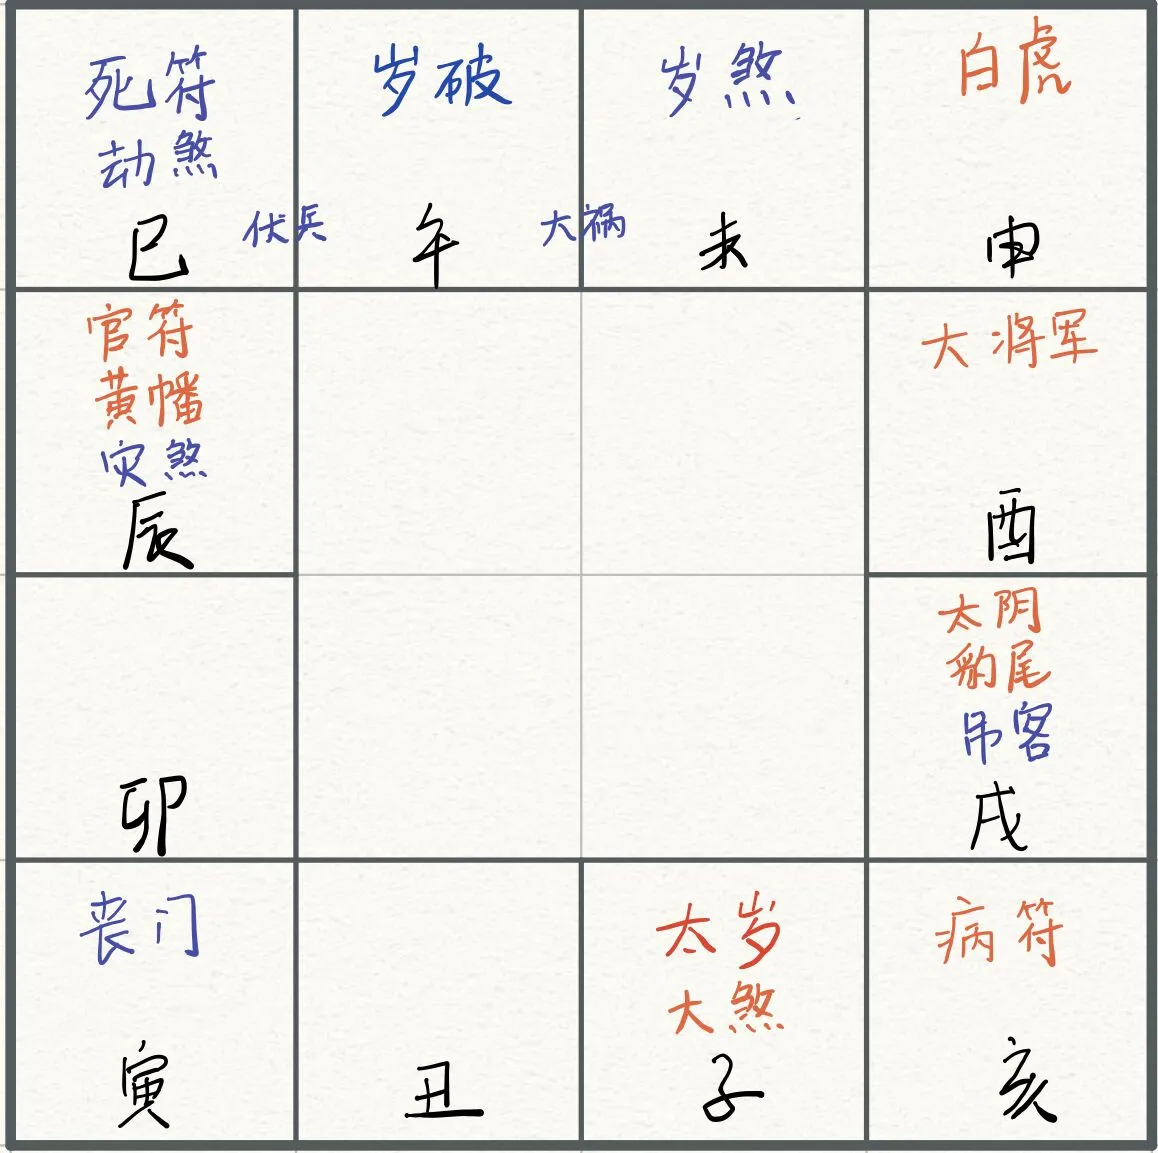 死符
劫煞
巳
伏兵
岁破
午
大祸
岁煞
未
白虎
申
官符
黄幡
灾煞
辰
大将军
酉
卯
太阴
豹尾
吊客
戌
丧门
寅
丑
太岁
大煞
子
病符
亥